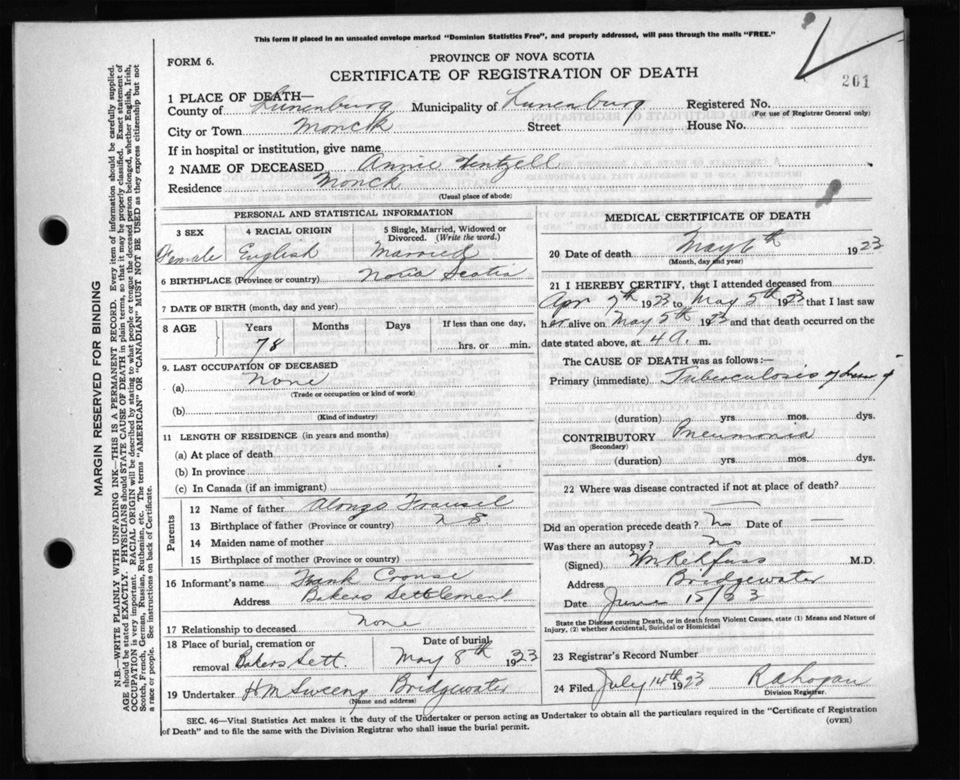 This form if placed in an unsealed envelope marked "Dominion Statistics Free", and properly addressed, will pass through the mails "FREE."
FORM 6.
PROVINCE OF NOVA SCOTIA
CERTIFICATE OF REGISTRATION OF DEATH
261
1 PLACE OF DEATH—
County of Lunenburg Municipality of Lunenburg Registered No.
(For use of Registrar General only)
City or Town Monck Street House No.
If in hospital or institution, give name
2 NAME OF DECEASED Annie Wentzell
Residence Monck
(Usual place of abode)
PERSONAL AND STATISTICAL INFORMATION
3 SEX Female
4 RACIAL ORIGIN English
5 Single, Married, Widowed or Divorced. (Write the word.) Married
6 BIRTHPLACE (Province or country) Nova Scotia
7 DATE OF BIRTH (month, day and year)
8 AGE Years Months Days If less than one day,
78 hrs. or min.
9. LAST OCCUPATION OF DECEASED
(a) None
(Trade or occupation or kind of work)
(b)
(Kind of industry)
11 LENGTH OF RESIDENCE (in years and months)
(a) At place of death
(b) In province
(c) In Canada (if an immigrant)
Parents
12 Name of father Alonzo
13 Birthplace of father (Province or country) N S
14 Maiden name of mother
15 Birthplace of mother (Province or country)
16 Informant's name Frank Crouse
Address Bakers Settlement
17 Relationship to deceased None
18 Place of burial, cremation or removal Bakers Sett.
Date of burial May 8th 1923
19 Undertaker H M Sweeny Bridgewater
(Name and address)
MEDICAL CERTIFICATE OF DEATH
20 Date of death May 6th 1923
(Month, day and year)
21 I HEREBY CERTIFY, that I attended deceased from
Apr 7th 1923 to May 5th 1923 that I last saw
her alive on May 5th 1923 and that death occurred on the
date stated above, at 4 a. m.
The CAUSE OF DEATH was as follows:—
Primary (immediate) Tuberculosis of
(duration) yrs. mos. dys.
CONTRIBUTORY Pneumonia
(Secondary)
(duration) yrs. mos. dys.
22 Where was disease contracted if not at place of death?
Did an operation precede death? No Date of
Was there an autopsy? No
(Signed) M.D.
Address Bridgewater
Date June 15/23
State the Disease causing Death, or in death from Violent Causes, state (1) Means and Nature of
Injury, (2) whether Accidental, Suicidal or Homicidal
23 Registrar's Record Number
24 Filed July 14th 1923
Division Registrar.
SEC. 46—Vital Statistics Act makes it the duty of the Undertaker or person acting as Undertaker to obtain all the particulars required in the "Certificate of Registration
of Death" and to file the same with the Division Registrar who shall issue the burial permit. (OVER)
MARGIN RESERVED FOR BINDING
N.B.—WRITE PLAINLY WITH UNFADING INK—THIS IS A PERMANENT RECORD. Every item of information should be carefully supplied.
AGE should be stated EXACTLY. PHYSICIANS should STATE CAUSE OF DEATH in plain terms, so that it may be properly classified. Exact statement of
OCCUPATION is very important. RACIAL ORIGIN will be described by stating to what people or tongue the deceased person belonged, whether English, Irish,
Scotch, French, German, Russian, Ruthenian, etc. The terms "AMERICAN" or "CANADIAN" MUST NOT BE USED as they express citizenship but not
a race or people. See instructions on back of Certificate.